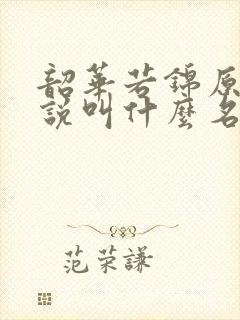 韶華若錦原
說叫什麼名
范荣謙